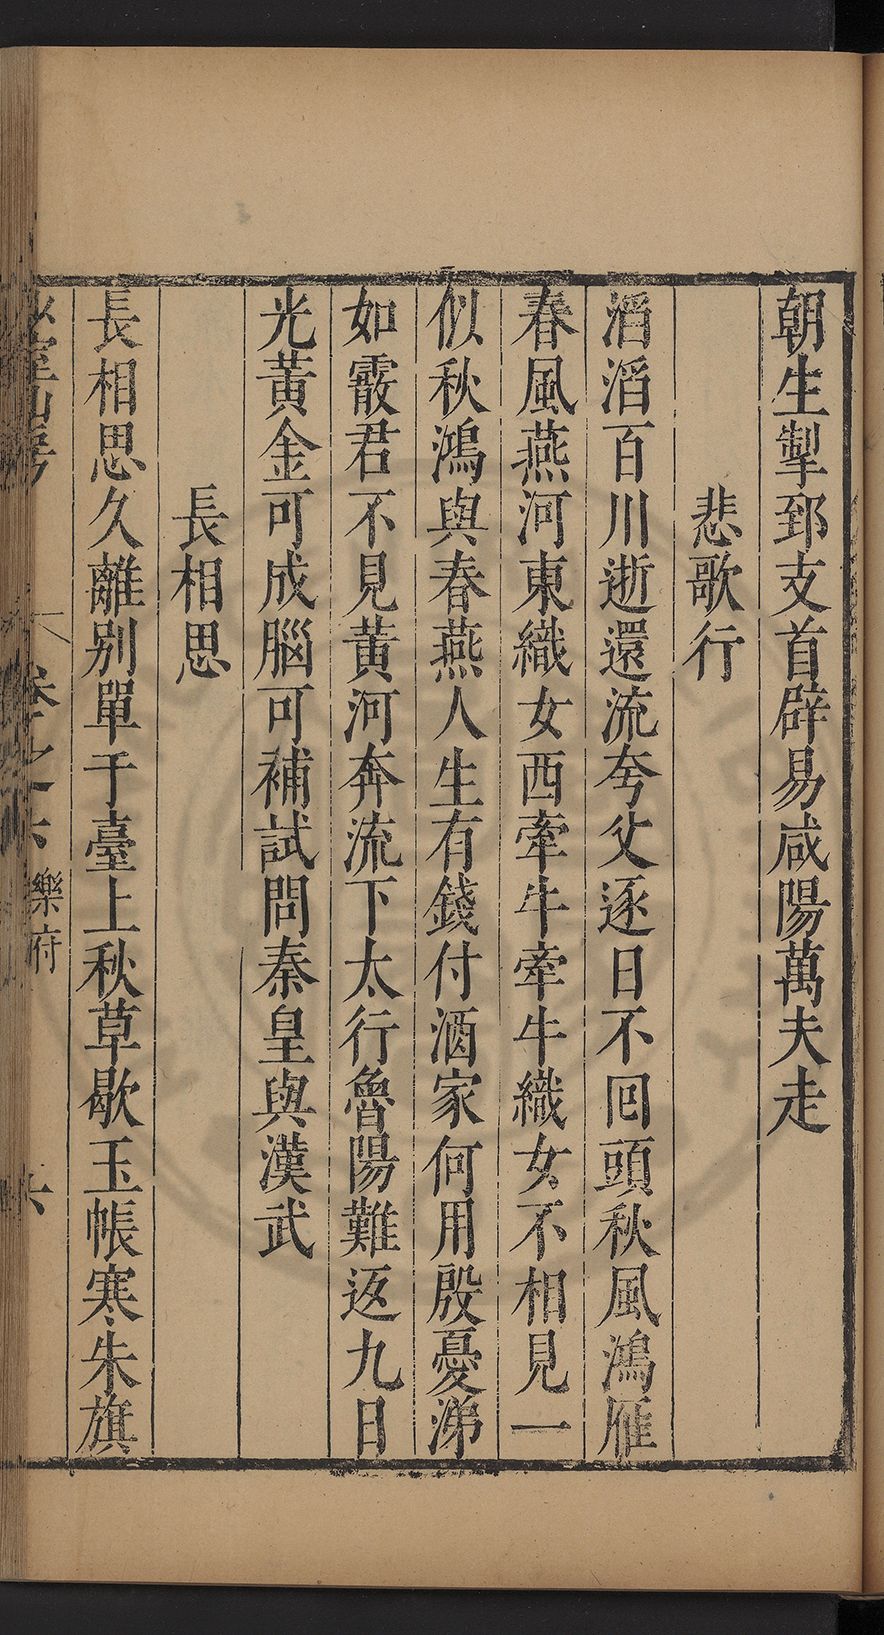 朝生掣郅支首辟易咸陽萬夫走
悲歌行
滔滔百川逝還流夸父逐日不囘頭秋風鴻雁
春風燕河東織女西牽牛牽牛織女不相見一
似秋鴻與春燕人生有錢付酒家何用殷憂涕
如霰君不見黃河奔流下太行魯陽難返九日
光黃金可成腦可補試問秦皇與漢武
長相思
長相思久離别單于臺上秋草歇玉帳寒朱旗
卷之六 樂府 六